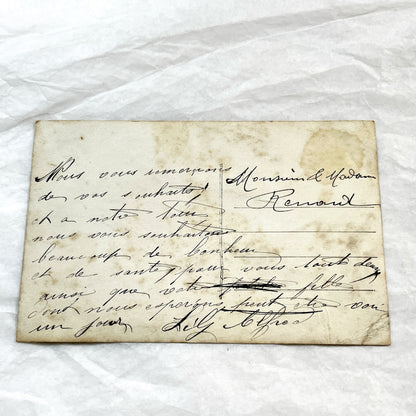 Nous vous remercions
de vos souhaits
et a notre tour
nous vous souhaitons
beaucoup de bonheur
et de santé pour vous touts deux
ainsi que votre fille
dont nous esperons peut etre voir
un jour Alfred
Monsieur & Madam
Renault